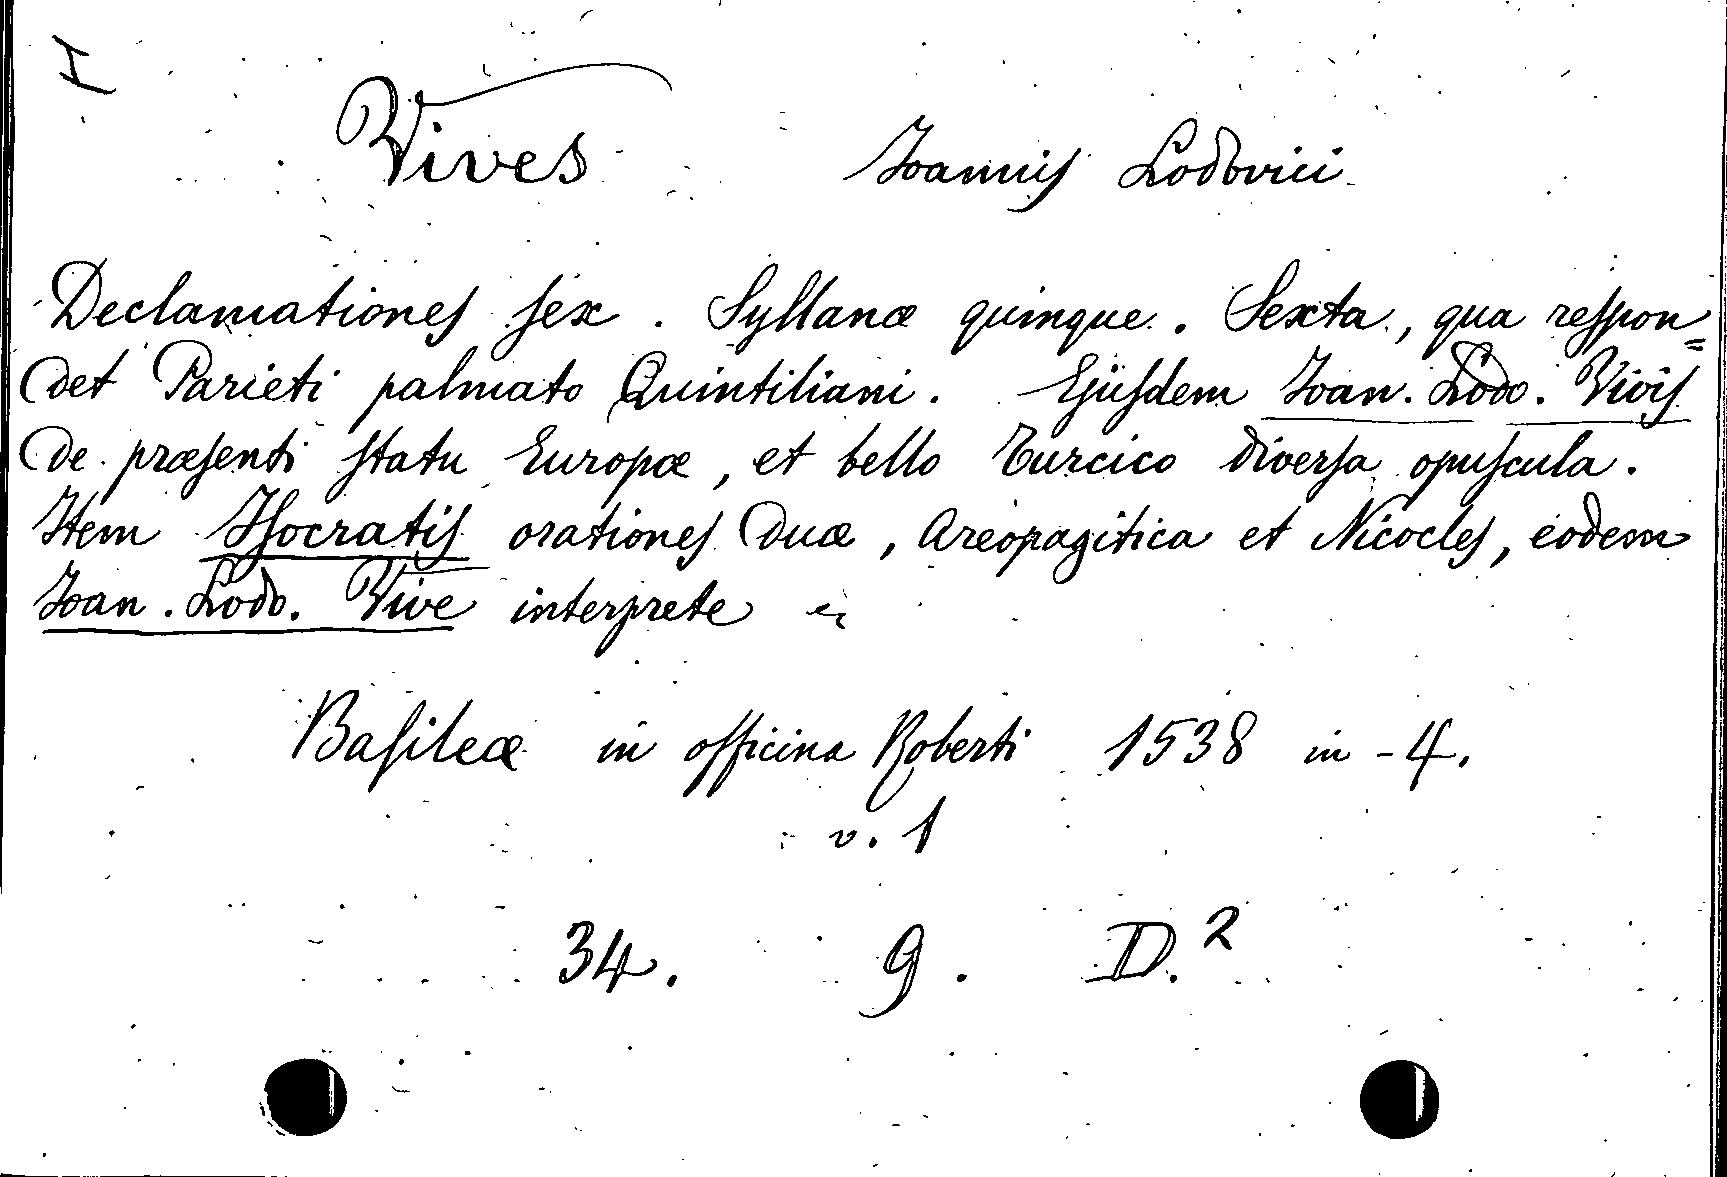 I
Vives Joannis Lodovici
Declamationes sex. Syllanæ quinque. Sexta, qua respon=
det Parieti palmato Quintiliani. Ejusdem Joan. Lodo. Vivis
de præsenti statu Europæ, et bello Turcico diversa opuscula.
Item Isocratis orationes duæ, Areopagitica et Nicocles, eodem
Joan. Lodo. Vive interprete
Basileæ in officina Roberti 1538 in-4.
v. 1
34. 9. D.²